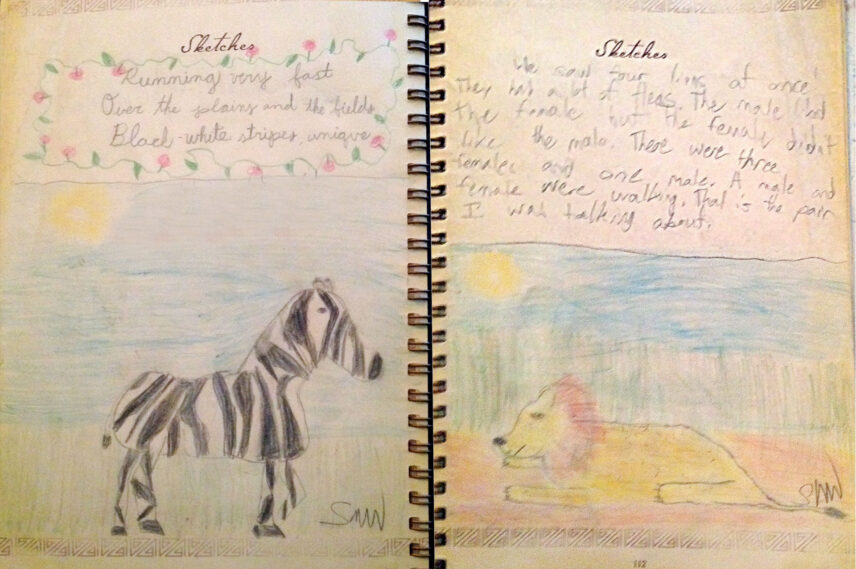 Sketches
Running very fast
Over the plains and the fields
Black-white stripes, unique
SMW
Sketches
We saw four lions at once!
They had a lot of fleas. The male liked
the female but the female didn't
like the male. There were three
females and one male. A male and
female were walking. That is the pair
I was talking about.
SMW
112